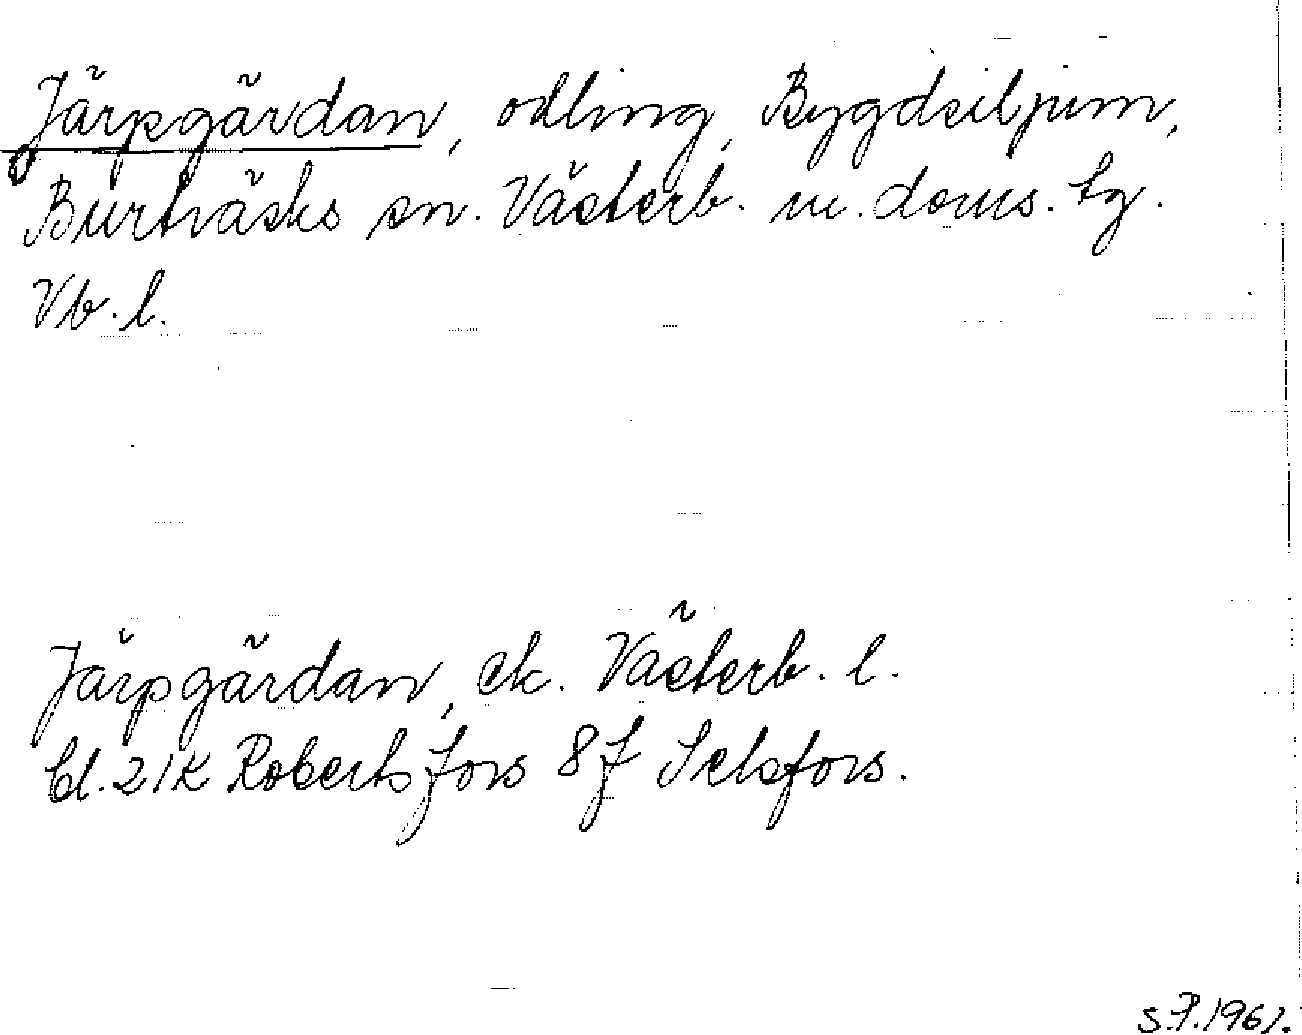 Järpgärdan, odling, Bygdsiljum,
Burträsks sn. Västerb. m. doms. tg.
Vb. l.
Järpgärdan, ek. Västerb. l.
bl. 21K Robertsfors 8f Selsfors.
S.P. 1961.